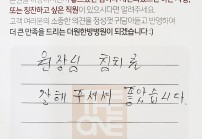 또는 칭찬하고 싶은 직원이 있으시다면 알려주세요.
고객 여러분의 소중한 의견을 정성껏 귀담아듣고 반영하여
더 큰 만족을 드리는 더원한방병원이 되겠습니다:)
원장님 침치료
잘해 주셔서 좋았습니다.
THE
ONE